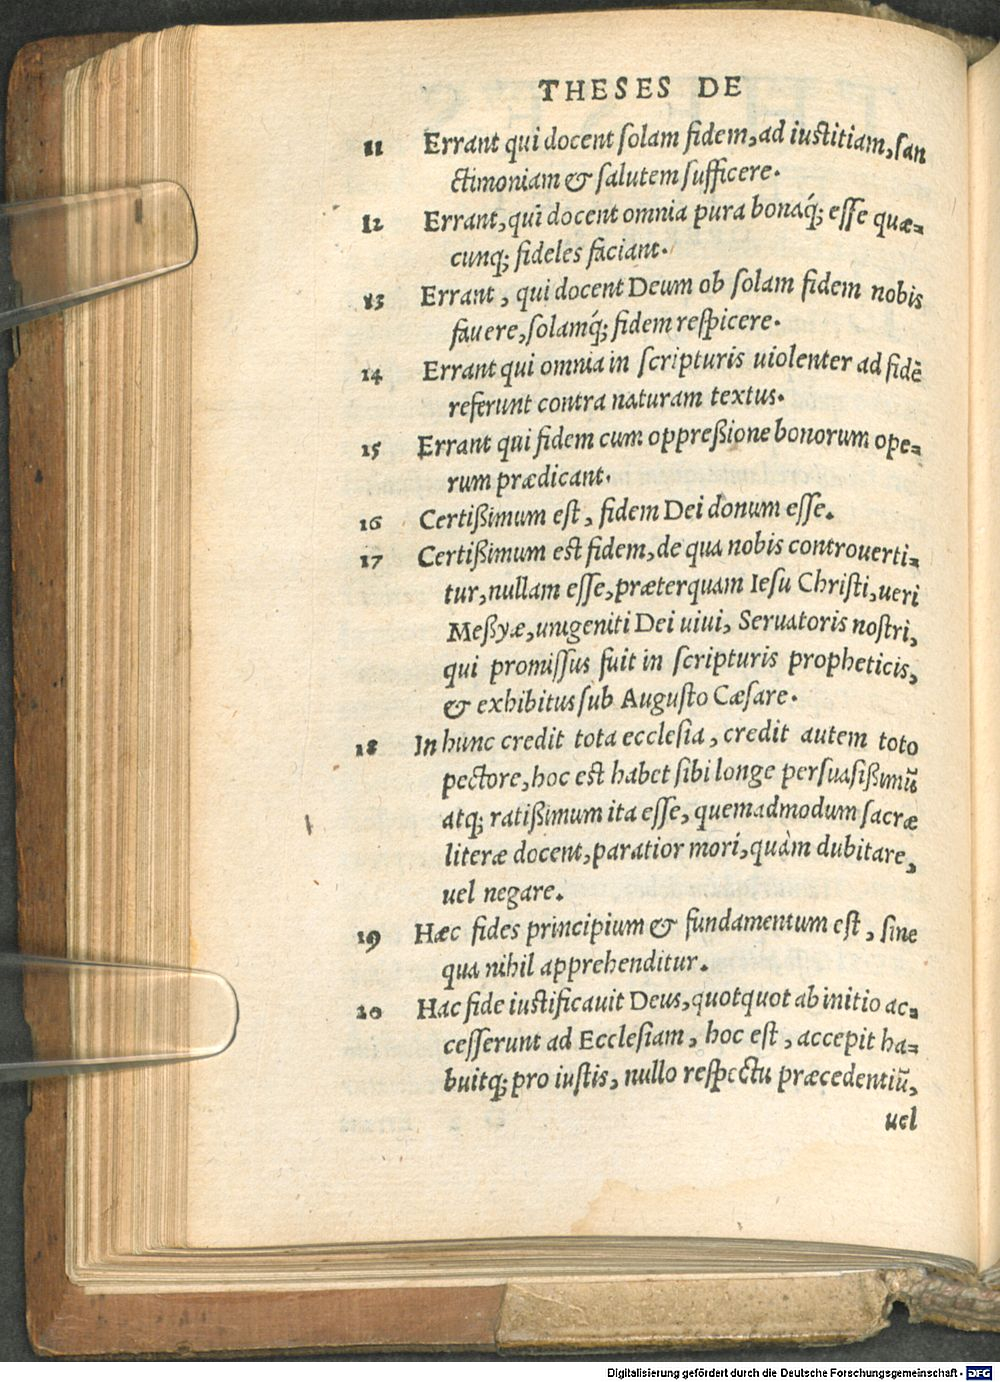 THESES DE
11 Errant qui docent solam fidem, ad iustitiam, san
ctimoniam & salutem sufficere.
12 Errant, qui docent omnia pura bonaq́; esse quæ-
cunq; fideles faciant.
13 Errant, qui docent Deum ob solam fidem nobis
fauere, solamq́; fidem respicere.
14 Errant qui omnia in scripturis uiolenter ad fidẽ
referunt contra naturam textus.
15 Errant qui fidem cum oppreßione bonorum ope-
rum prædicant.
16 Certißimum est, fidem Dei donum esse.
17 Certißimum est fidem, de qua nobis controuerti-
tur, nullam esse, præterquam Iesu Christi, ueri
Meßyæ, unigeniti Dei uiui, Seruatoris nostri,
qui promissus fuit in scripturis propheticis,
& exhibitus sub Augusto Cæsare.
18 In hunc credit tota ecclesia, credit autem toto
pectore, hoc est habet sibi longe persuasißimũ
atq; ratißimum ita esse, quemadmodum sacræ
literæ docent, paratior mori, quàm dubitare,
uel negare.
19 Hæc fides principium & fundamentum est, sine
qua nihil apprehenditur.
20 Hac fide iustificauit Deus, quotquot ab initio ac-
cesserunt ad Ecclesiam, hoc est, accepit ha-
buitq; pro iustis, nullo respectu præcedentiũ,
uel
Digitalisierung gefördert durch die Deutsche Forschungsgemeinschaft - DFG